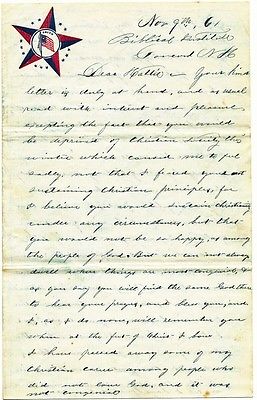 Nov 9th, 61
Biblical Institute
Concord N H
Dear Hattie Your kind
letter is duly at hand, and as usual
read with interest and pleasure,
excepting the fact that you would
be deprived of Christian society this
winter which caused me to feel
sadly, not that I feared your not
sustaining Christian principles, for
I believe you would sustain christianity
under any circumstances, but that
you would not be so happy, as among
the people of God. But we can not always
dwell where things are most congenial, &
as you say you will find the same God there
to hear your prayers, and bless you, and
I, as I do now, will remember you
when at the feet of Christ I bow.
I have passed away some of my
Christian career among people who
did not love God, and it was
not congenial